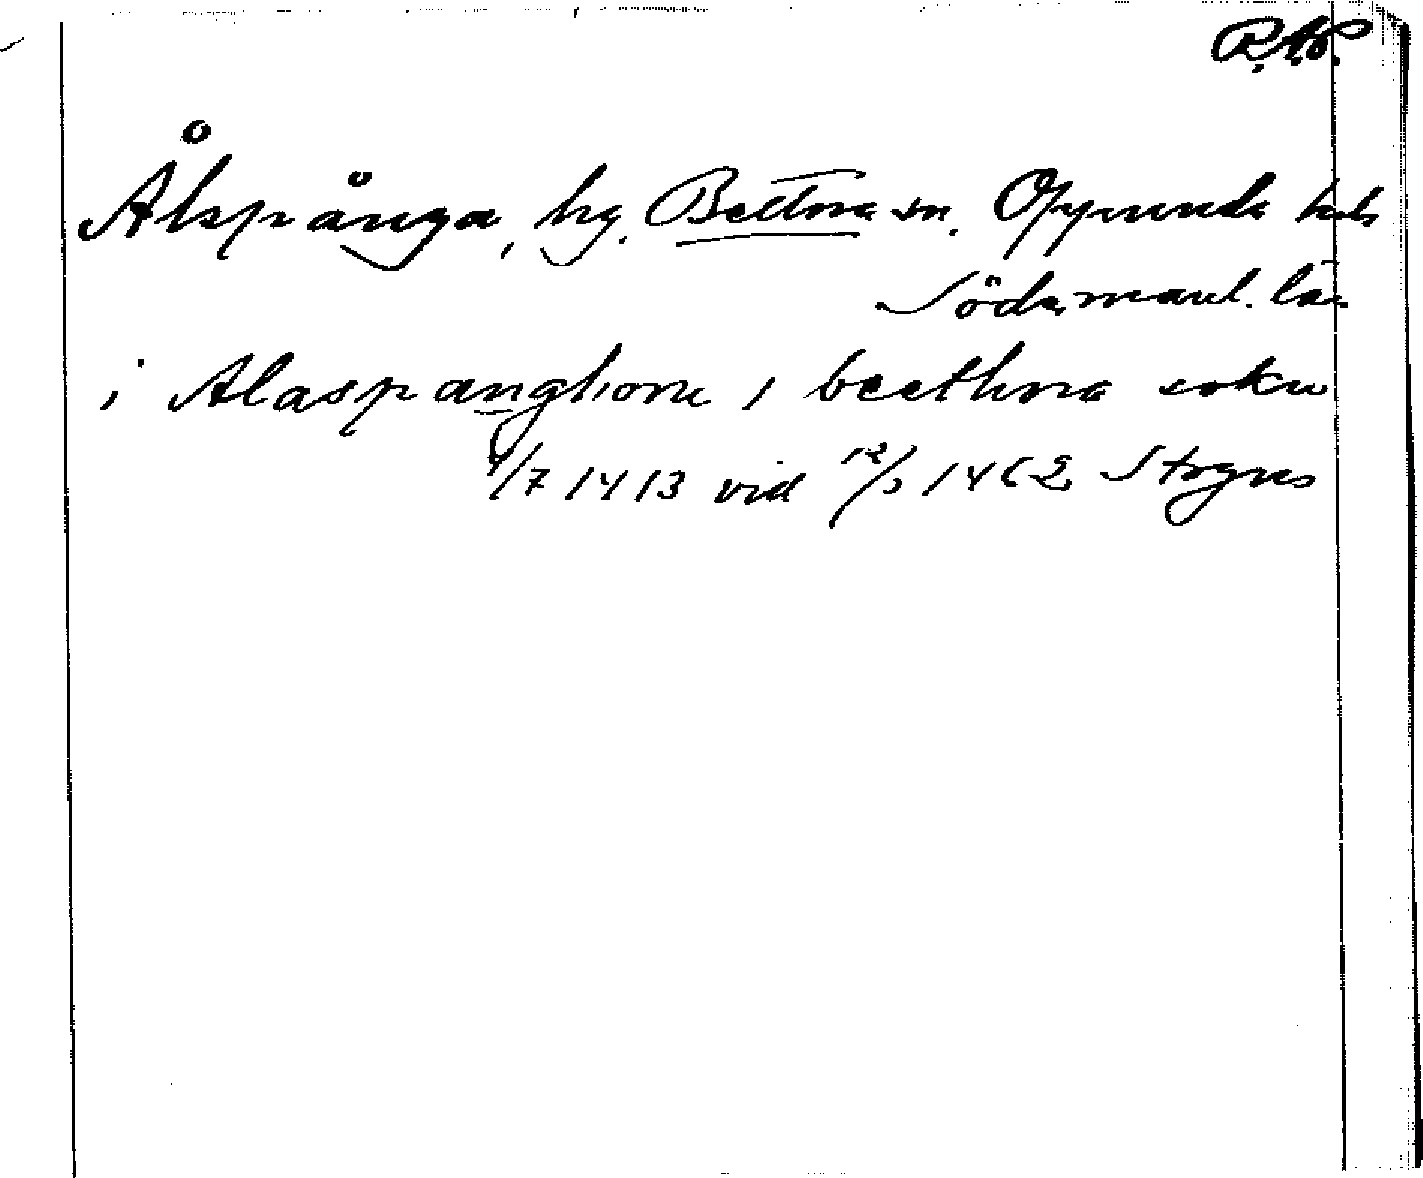 R.A.P.
Ålspånga, hg. Bettna sn. Oppunda hd
Södermanl. län
i Alaspanghom i beethna sokn
1/7 1413 vid 12/3 1462 Strgns